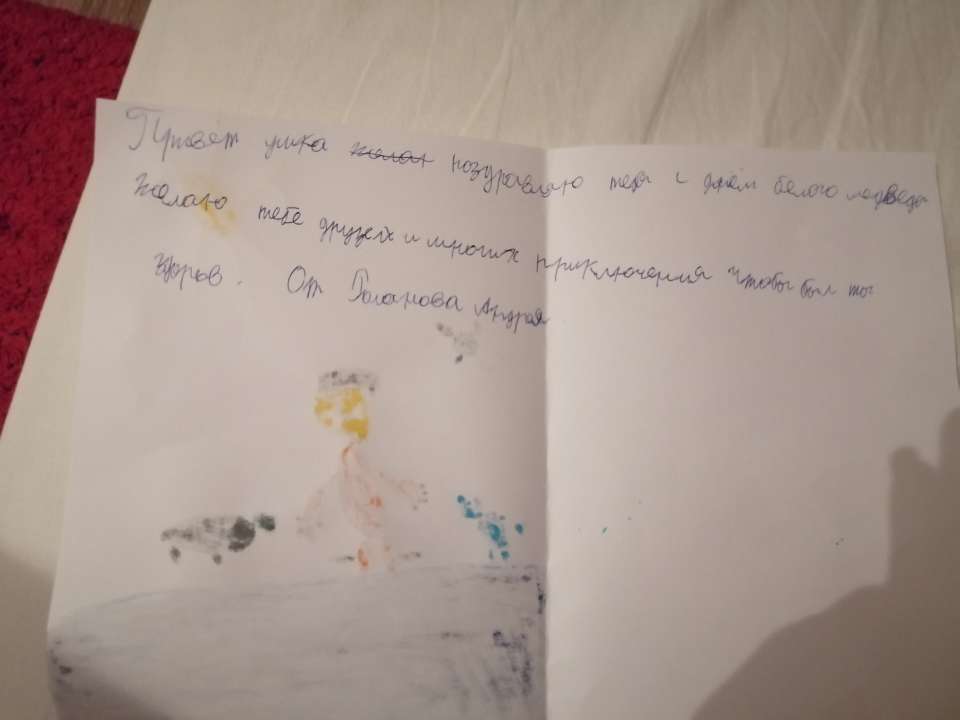 Привет умка желан поздравляю тебя с днём белого медведя
желаю тебе друзей и многих приключения чтобы был ты
здоров. От Романова Андрея